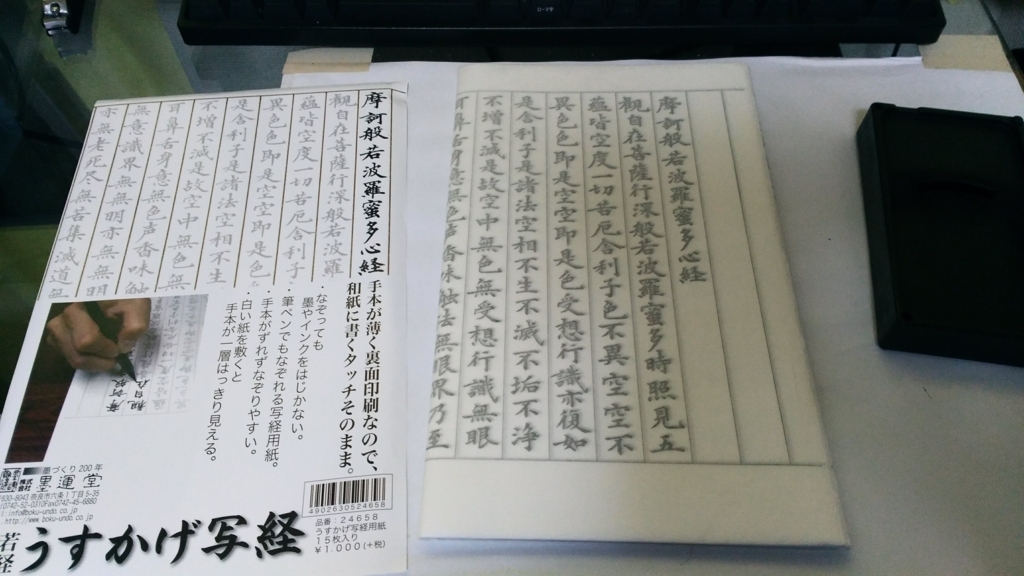 摩訶般若波羅蜜多心経
観自在菩薩行深般若波羅
蘊皆空度一切苦厄舎利子
異色色即是空空即是色
是舎利子是諸法空相不生
不増不滅是故空中無色
耳鼻舌身意無色声香味触
無意識界無無明亦無無明
亦無老死尽無苦集滅道無
手本が薄く裏面印刷なので、
和紙に書くタッチそのまま。
・なぞっても
墨やインクをはじかない。
・筆ペンでもなぞれる写経用紙。
・手本がすれずなぞりやすい。
・白い紙を敷くと
手本が一層はっきり見える。
墨づくり200年
株式会社
墨運堂
〒630-8043 奈良市六条1丁目5-35
(0742-52-0310Fax0742-45-6880
:info@boku-undo.co.jp
http://www.boku-undo.co.jp
4902630524658
品番:24658
うすかげ写経用紙
15枚入り
¥1,000(+税)
うすかげ写経
摩訶般若波羅蜜多心経
観自在菩薩行深般若波羅蜜多時照見五
蘊皆空度一切苦厄舎利子色不異空空不
異色色即是空空即是色受想行識亦復如
是舎利子是諸法空相不生不滅不垢不浄
不増不滅是故空中無色無受想行識無眼
耳鼻舌身意無色声香味触法無眼界乃至